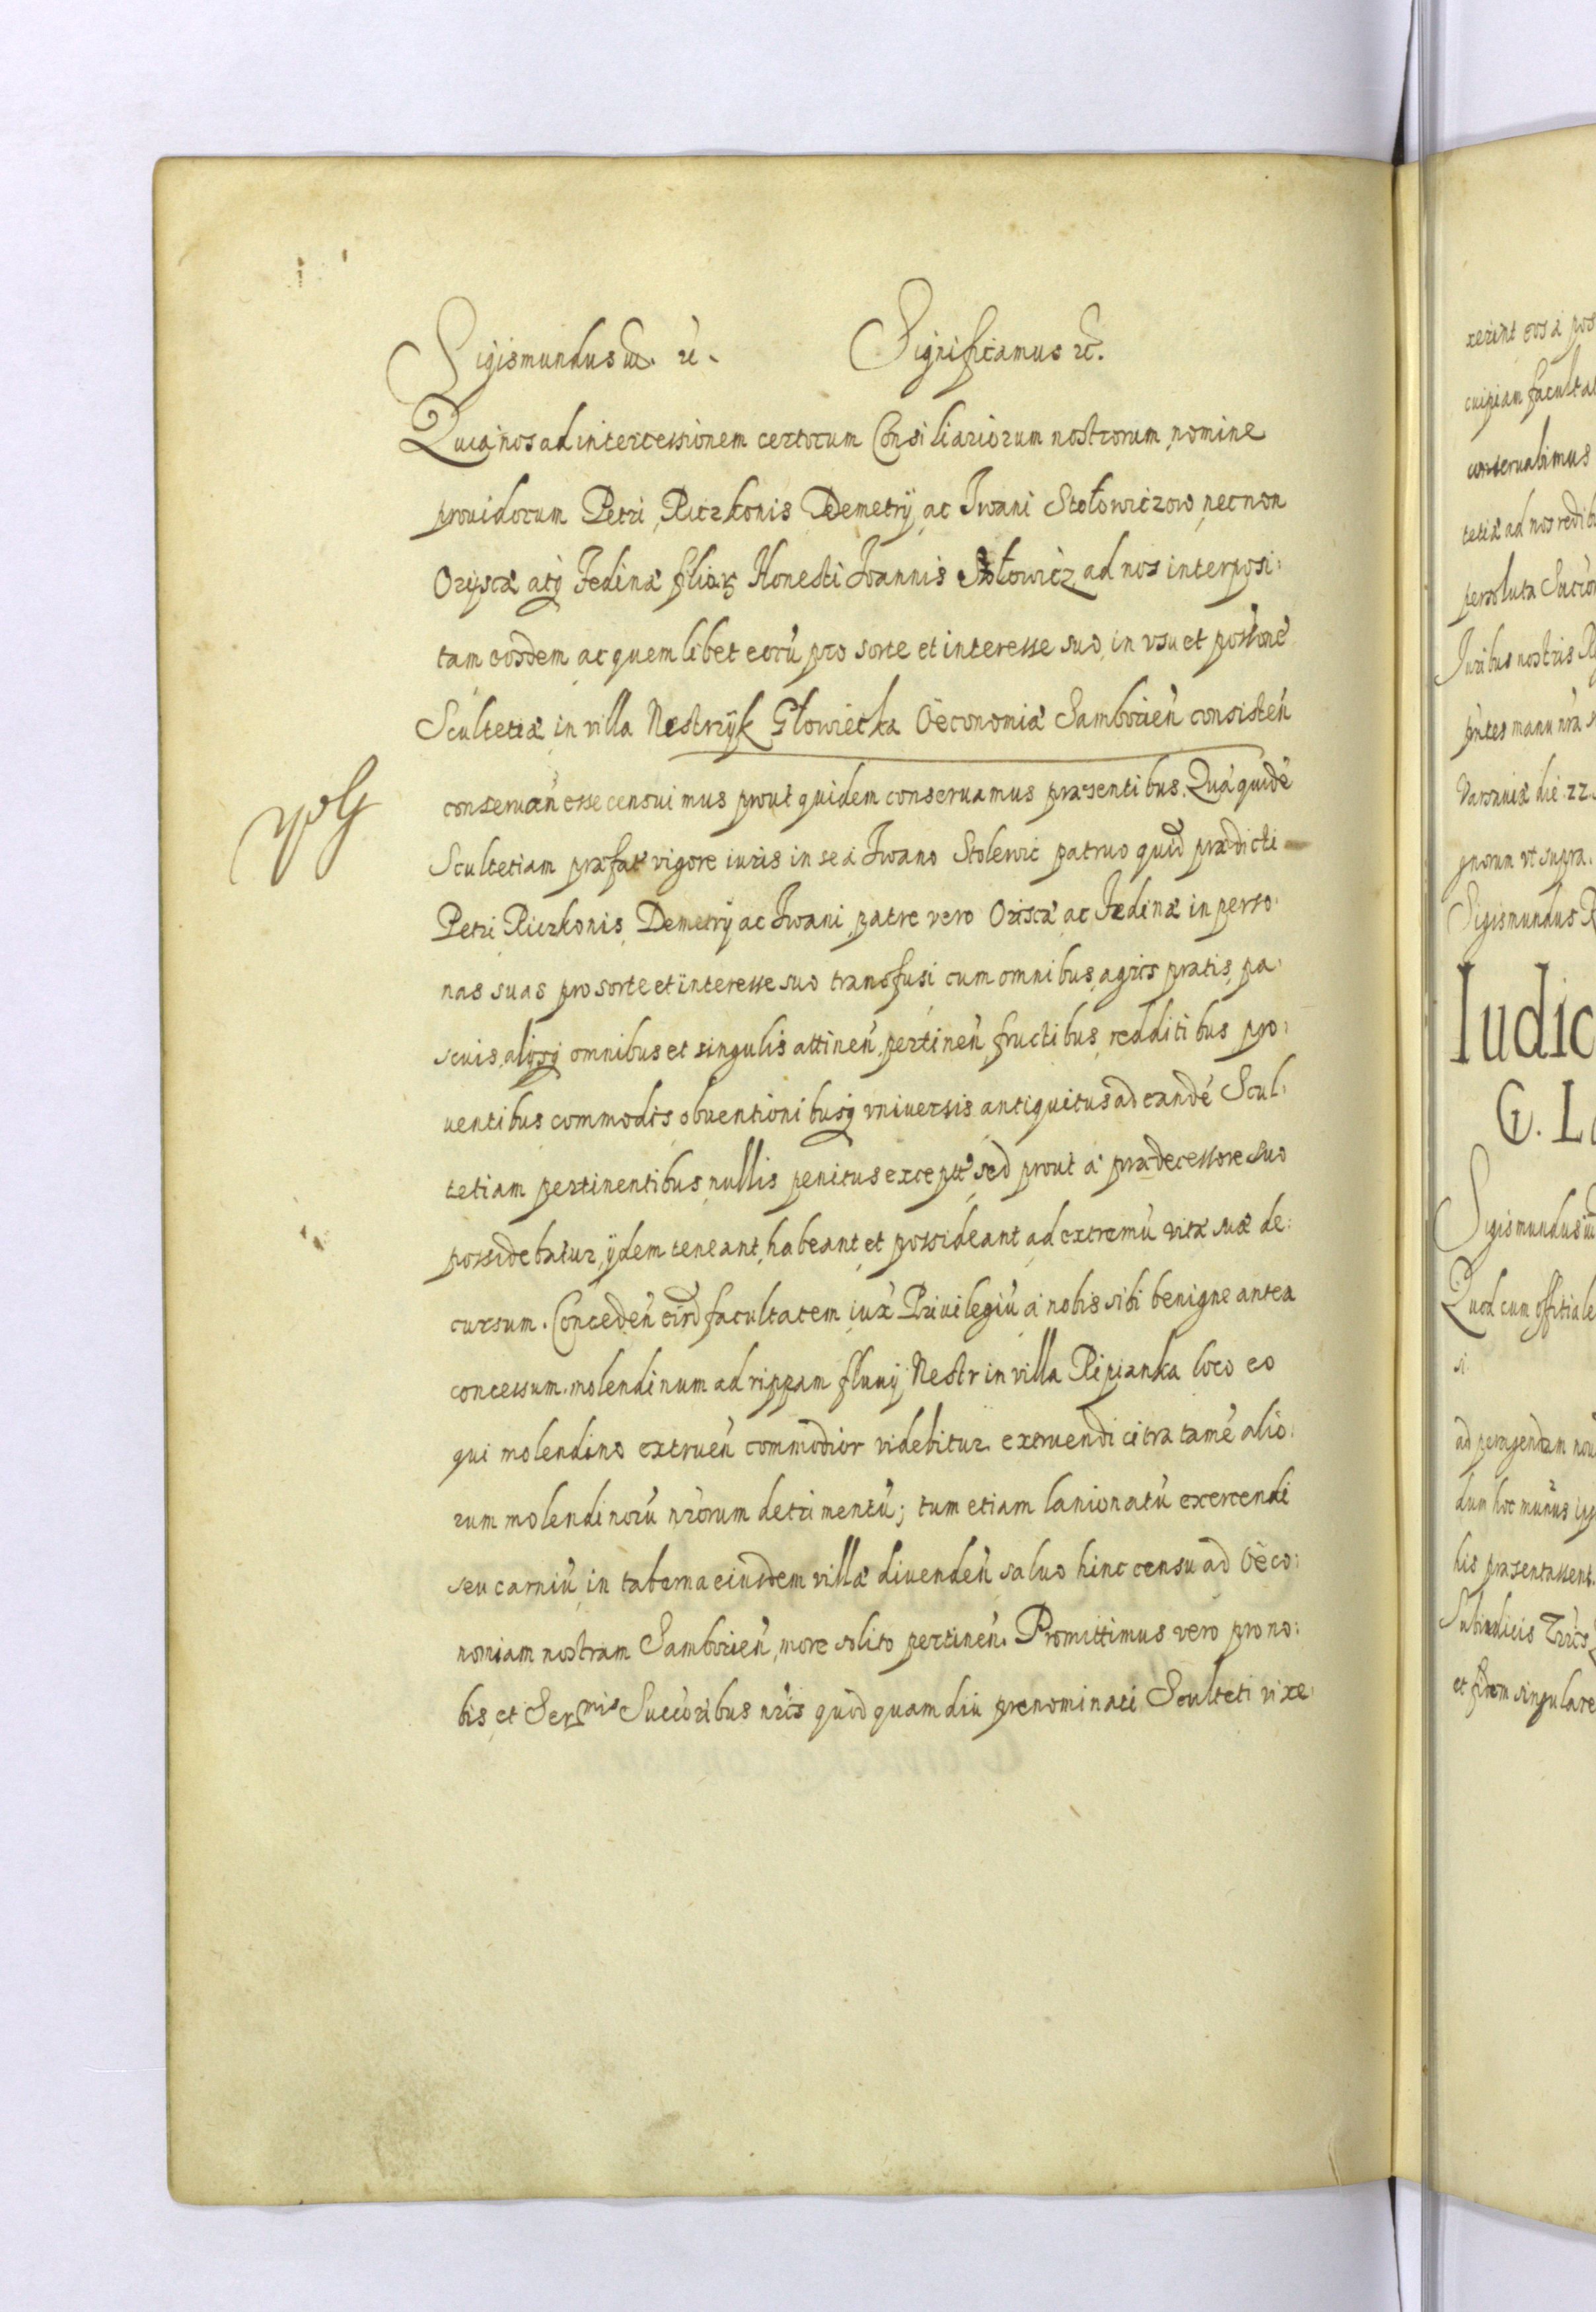 Sigismundus III. etc. Significamus etc.
Quia nos ad intercessionem certorum Consiliariorum nostrorum, nomine
prouidorum Petri, Riczkonis Demetrÿ, ac Iwani Stołowiczow, necnon
Oryscæ atq Fedinæ filiar Honesti Ioannis Stołowicz, ad nos interposi:
tam eosdem, ac quemlibet eorū pro sorte et interesse suo, in vsu et possone
Scultetiæ in villa Nestrzÿk Głowiecka Oeconomiæ Samborien consisten
conseruan esse censuimus prout quidem conseruamus præsentibus. Quā quidē
Scultetiam præfat vigore iuris in se à Iwano Stolewic patruo quid prædicti
Petri Riczkonis, Demetrÿ ac Iwani, patre vero Oriscæ, ac Fedinæ in perso:
nas suas pro sorte et interesse suo transfusi cum omnibus, agris pratis, pa:
scuis, alÿsq omnibus et singulis attinen, pertinen, fructibus, redditibus pro:
uentibus commodis obuentionibusq vniuersis antiquitus ad eandē Scul:
tetiam pertinentibus, nullis penitus except, sed prout à prædecessore suo
possidebatur, ÿdem teneant, habeant, et possideant ad extremū vitæ suæ de:
cursum. Conceden eisd facultatem iux Priuilegiū à nobis sibi benigne antea
concessum, molendinum ad rippam fluuÿ Nestr in villa Ripianka loco eo
qui molendino extruen commodior videbitur extruendi citra tamē alio:
rum molendinorū nrorum detrimentū; tum etiam lanionatū exercendi
seu carniū, in taberna eiusdem villæ diuenden saluo hinc censu ad Oeco:
nomiam nostram Samborien, more solito pertinen. Promittimus vero pro no:
bis, et Sermis Succoribus nris quod quam diu prenominati Sculteti vixe:
xerint eos à pos
cuipiam facultat
conseruabimus
tetiæ ad nos redib
persoluta Succo
Iuribus nostris R
pntes manu nra s
Varsauiæ die 22
gnorum vt supra.
Sigismundus R
Iudic
G. L
Sigismundus III
Quod cum offitiale
si
ad peragendum nou
dum hoc munus ips
his præsentassent
Subiudicis Trrs
et fidem singulare